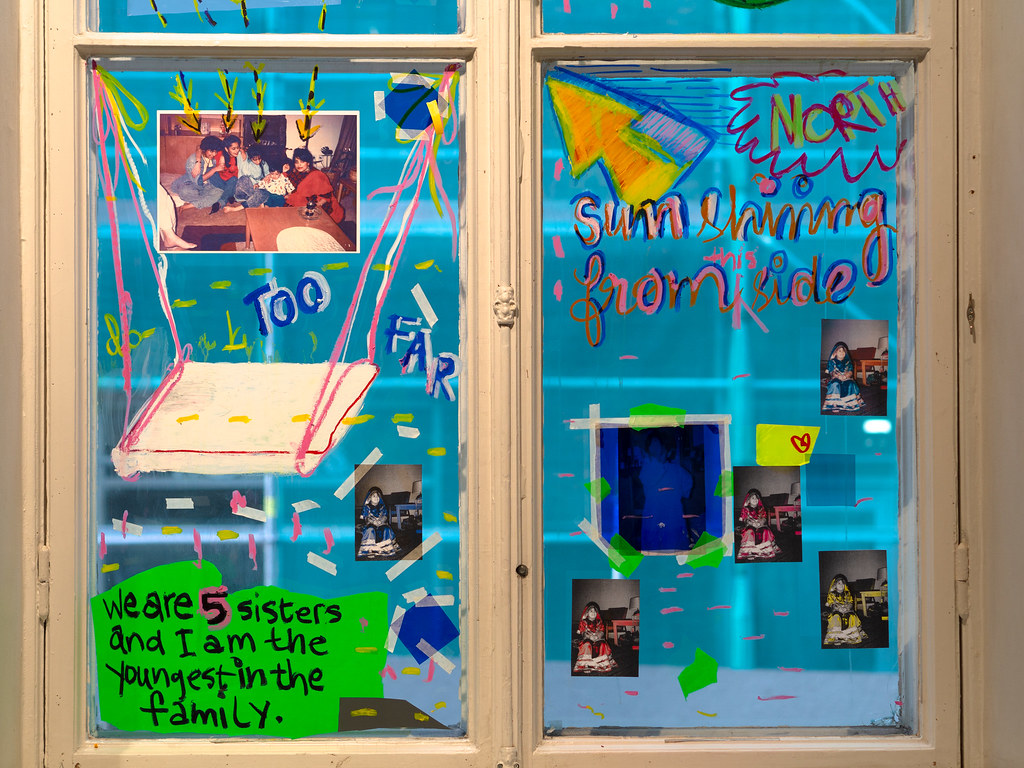 TOO
FAR
We are 5 sisters
and I am the
youngest in the
family.
NORTH
sun shining
this
from side